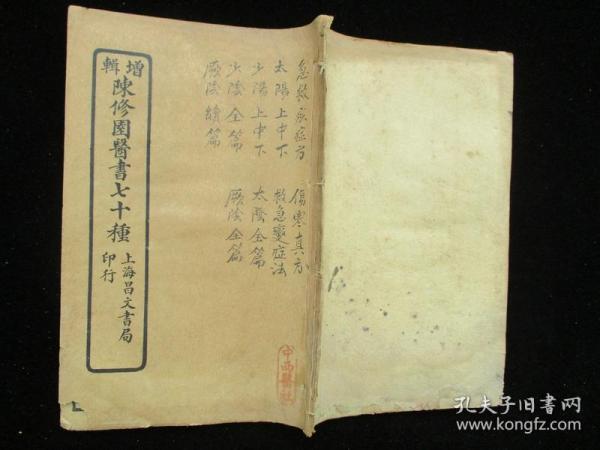 增輯
陳修園醫書七十種
上海昌文書局
印行
急救症方 傷寒真方
太陽上中下 救急變症法
少陽上中下 太陰全篇
少陰全篇 厥陰全篇
厥陰續篇
中西醫
孔夫子旧书网
www.kongfz.com